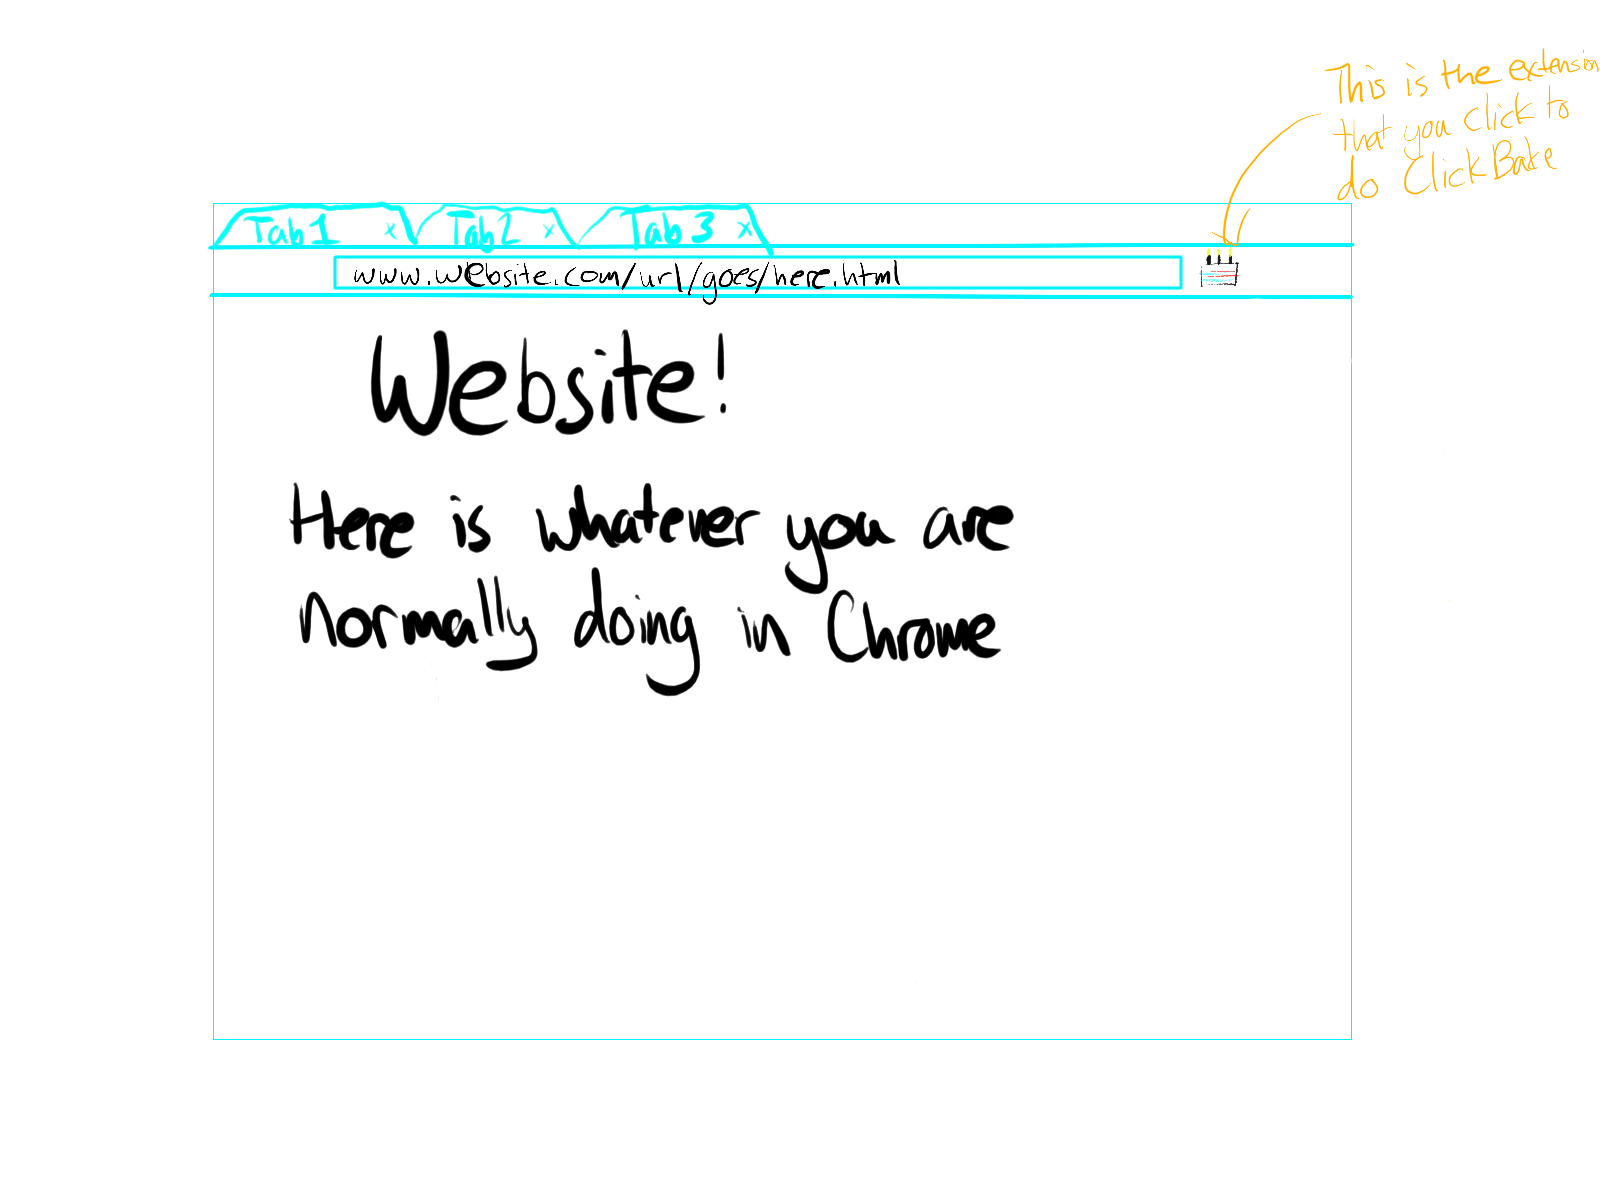 This is the extension
that you click to
do ClickBake
Tab 1 x Tab 2 x Tab 3 x
www.website.com/url/goes/here.html
Website!
Here is whatever you are
normally doing in Chrome